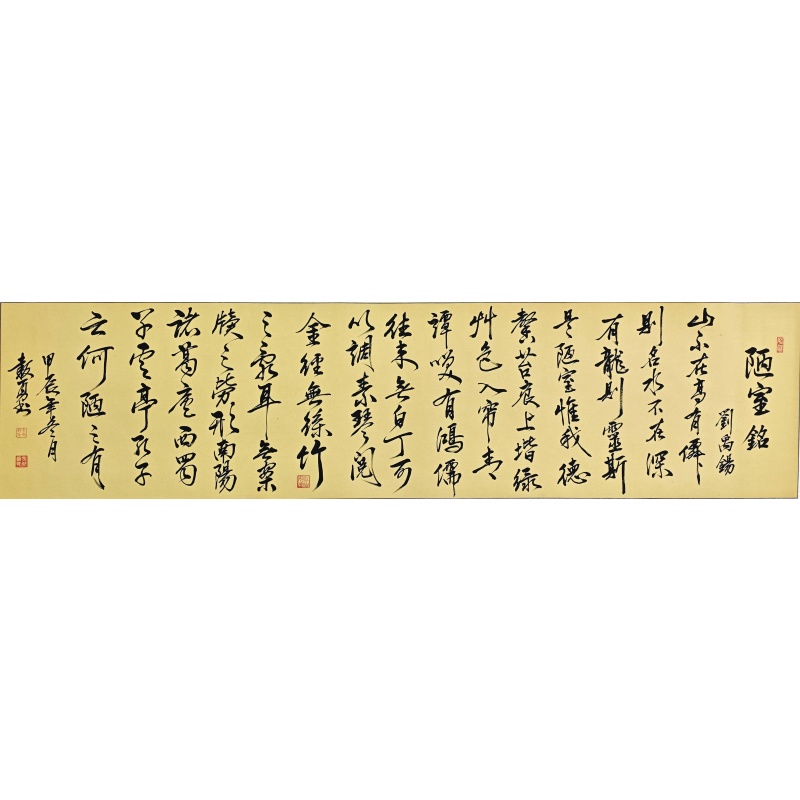 陋室銘
劉禹錫
山不在高有僊
則名水不在深
有龍則靈斯
是陋室惟我德
馨苔痕上堦綠
艸色入帘青
譚笑有鴻儒
往来无白丁可
以調素琴閱
金經無絲竹
之亂耳无案
牘之勞形南陽
諸葛廬西蜀
子雲亭孔子
云何陋之有
甲辰年冬月